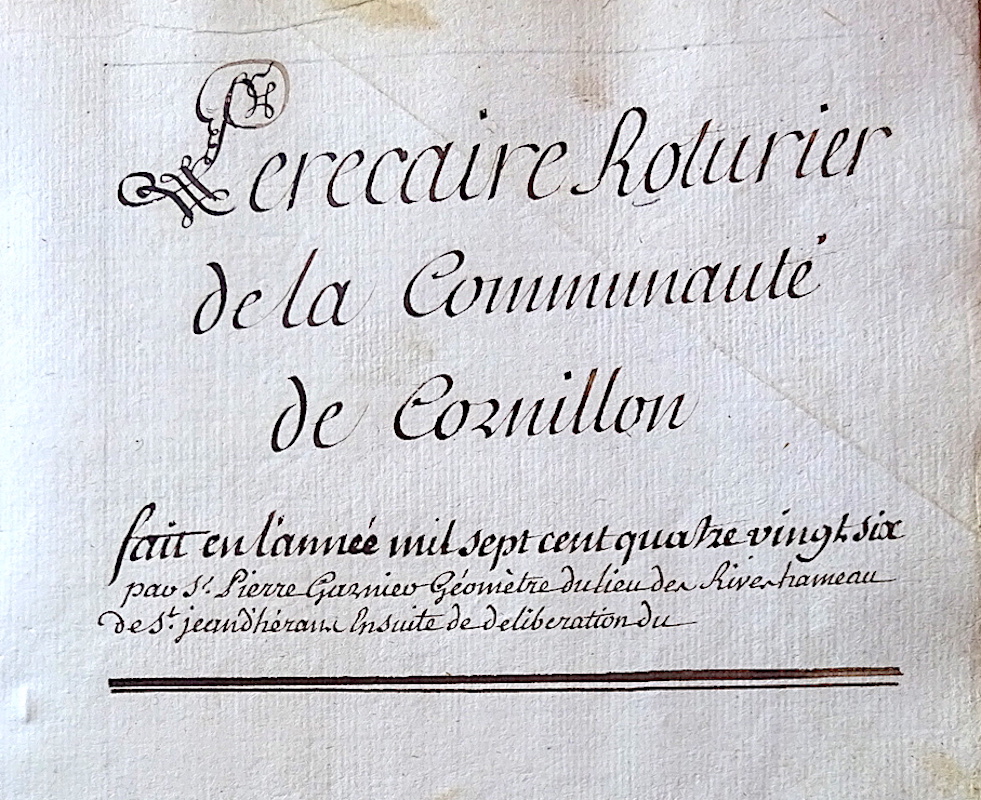 Perecaire Roturier
de la Communauté
de Cornillon
fait en l'année mil sept cent quatre vingt six
par Sr. Pierre Garnier Géomètre du lieu des Rives hameau
de St. jean d'hérans Ensuite de deliberation du